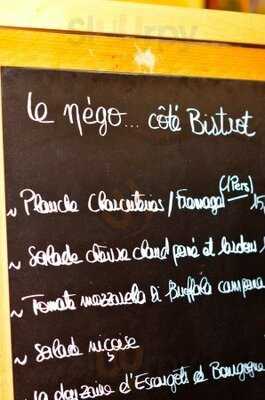 Le Négo... côté Bistrot
(1Pers)
~ Planche Charcuteries / Fromage 15,
~ Salade chèvre chaud pané et lardon
~ Tomate mozzarella di Buffala campana
~ Salade niçoise
la douzaine d'Escargots de Bourgogne